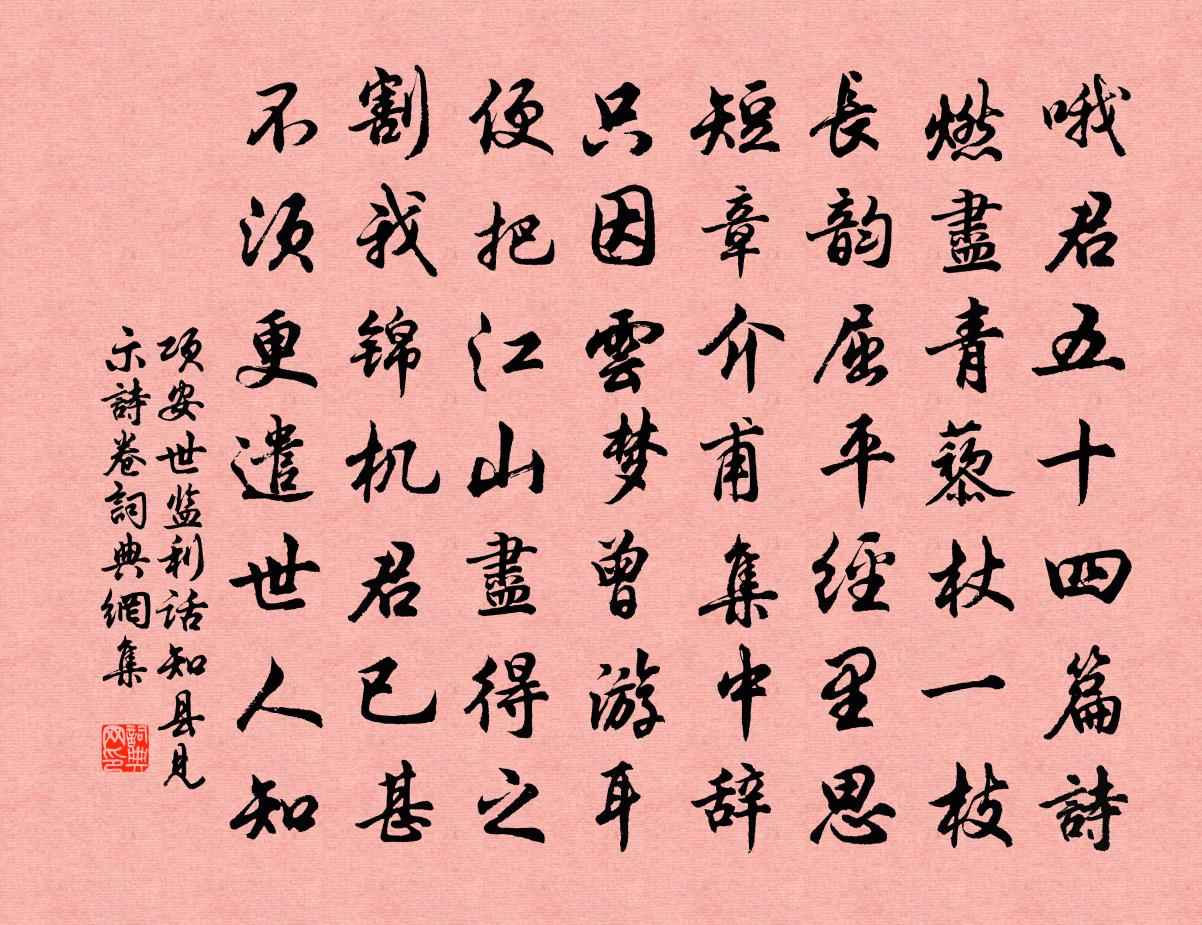 哦君五十四篇詩
燃盡青藜杖一枝
長韵屈平經里思
短章介甫集中辞
只因雲梦曾游耳
便把江山盡得之
割我锦机君已甚
不须更遣世人知
项安世监利话知县見
示詩卷詞典網集
詞典
网印